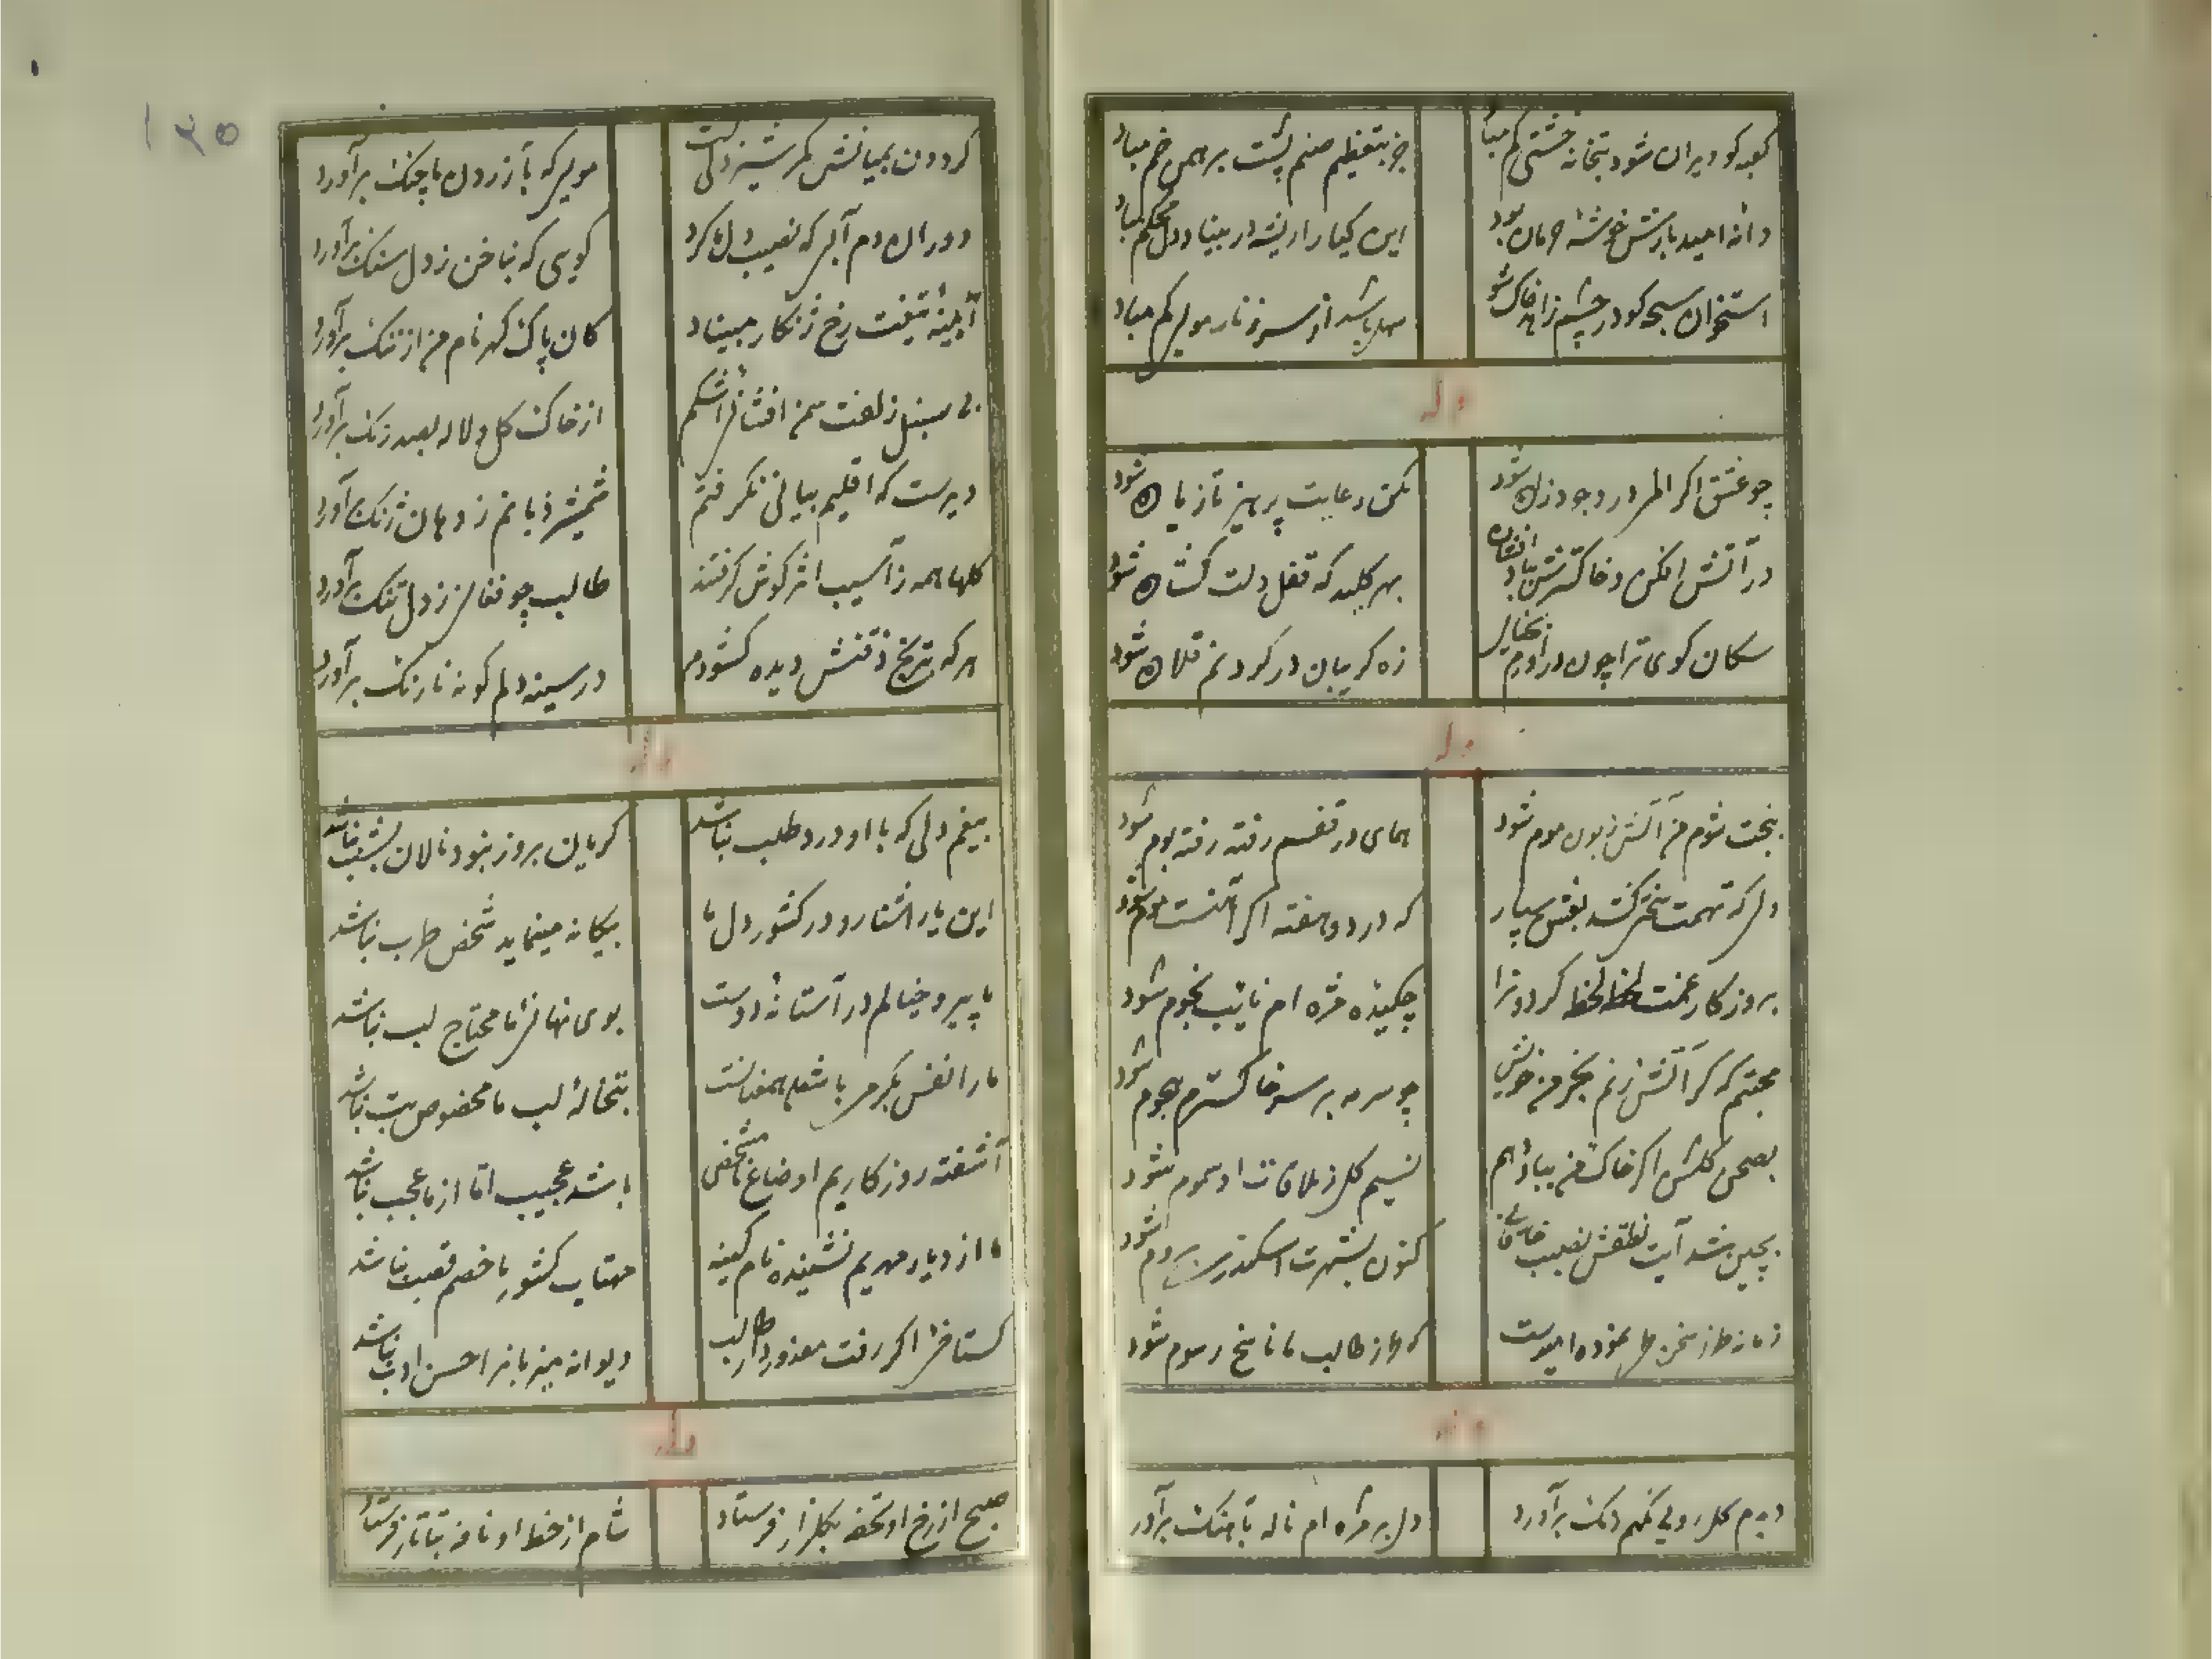 کعبه کو ویران شود بتخانه خشتی کم مباد
جز بتعظیم صنم پشت برهمن خم مباد
دانه امید بارش خوشه حرمان بود
این کیا را ریشه در بنیاد دل محکم مباد
استخوان سبحه کو در چشم زاهد خاک شو
از سر زنار مویی کم مباد
وله
چو عشق اگر الم در وجود زاده شود
مکن رعایت پرهیز تا زیاده شود
در آتش افکن و خاکسترش بباد افشان
بهر کلید که قفل دلت کشاده شود
سکان کوی ترا چون درآورم بخیال
زه کریبان در کردنم قلاده شود
وله
ببخت شوم من آتش زبون موم شود
همای در قفسم رفته رفته بوم شود
دلی که تهمت سختی کشد بعشق سپار
که در دو هفته اگر آهنست موم شود
بروزکار غمت لحظه لحظه کردون را
چکیده مژه ام نایب نجوم شود
محبتم که کر آتش زنم بخرمن خویش
چو سرمه بر سر خاکسترم هجوم شود
بصحن کلشن اکر خاک من بباد دهم
نسیم کل ز ملاقات او سموم شود
بچین شد آیت نطقش نصیب خاقانی
کنون بشهرت اسکندر بروم شود
زمانه طرز سخن طرح نموده امیدست
که طرز طالب ما ناسخ رسوم شود
وله
دیدم کل رویی نکهم رنک برآورد
دل بر مژه ام ناله بآهنک برآورد
۱۳۵
کردون بمیانش کمر شیر دلی بست
مویی که بآزردن ما چنک برآورد
دوران دم آبی که نصیب دل ما کرد
کویی که بناخن ز دل سنک برآورد
آیینه تیغت رخ زنکار مبیناد
کان پاک کهر نام من از ننک برآورد
بی سنبل زلفت سمن افشانی اشکم
از خاک کل و لاله بصد رنک برآورد
دیرست که اقلیم بیانی نکرفتم
شمشیر زبانم ز دهان زنک برآورد
کلها همه ز آسیب اثر کوش کرفتند
طالب چو فغانی ز دل تنک برآورد
هر که بترنج ذقنش دیده کشودم
در سینه دلم کونه نارنک برآورد
وله
بیغم دلی که با او درد طلب نباشد
کریان بروز نبود نالان بشب نباشد
این یار آشنا رو در کشور دل ما
بیکانه مینماید شخص طرب نباشد
ما پیرو خیالم در آستانه دوست
بوی نهانی ما محتاج لب نباشد
ما را نفس بکرمی با شعله همعنانست
بتخاله لب ما مخصوص تب نباشد
آشفته روزکاریم اوضاع ما مشخص
باشد عجیب اما از ما عجب نباشد
ما از دیار مهریم نشنیده نام کینه
مهتاب کشور ما خصم قصب نباشد
کستاخی اکر رفت معذور دار طالب
دیوانه میزبان را حسن ادب نباشد
وله
صبح از رخ او تحفه بکلزار فرستاد
شام از خط او نافه بتاتار فرستاد